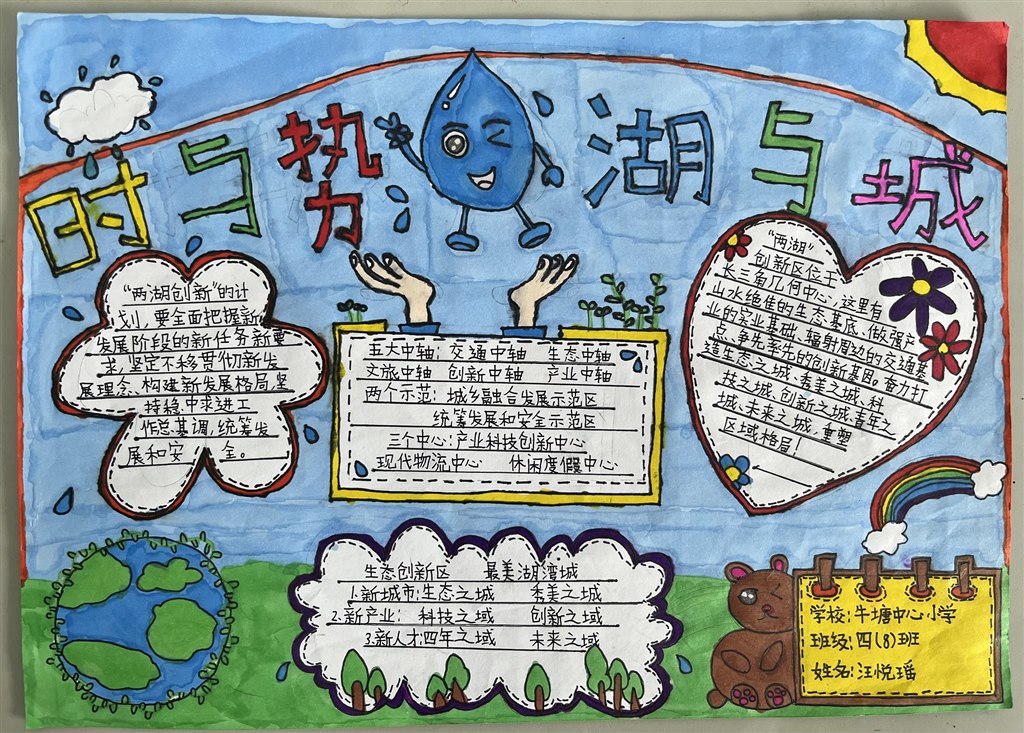 时与势 湖与城
"两湖创新"的计
划，要全面把握新
发展阶段的新任务新要
求，坚定不移贯彻新发
展理念、构建新发展格局，坚
持稳中求进工
作总基调，统筹发
展和安全。
五大中轴：交通中轴 生态中轴
文旅中轴 创新中轴 产业中轴
两个示范：城乡融合发展示范区
统筹发展和安全示范区
三个中心：产业科技创新中心
现代物流中心 休闲度假中心
"两湖"
创新区位于
长三角几何中心，这里有
山水绝佳的生态基底、做强产
业的实业基础，辐射周边的交通基
点、争先率先的创新基因。奋力打
造生态之城、秀美之城、科
技之城、创新之城、青年之
城、未来之城，重塑
区域格局！
生态创新区 最美湖湾城
1.新城市：生态之城 秀美之城
2.新产业：科技之域 创新之域
3.新人才：四年之域 未来之域
学校：牛塘中心小学
班级：四(8)班
姓名：汪悦瑶